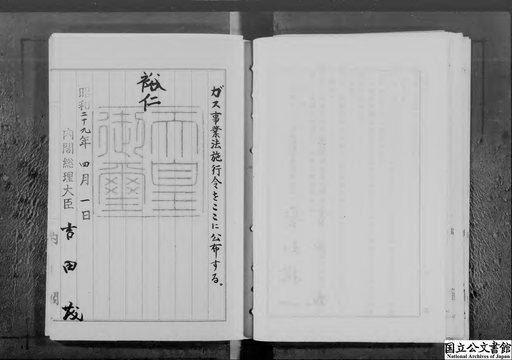 ガス事業法施行令をここに公布する。
裕仁
天皇御璽
昭和二十九年四月一日
内閣総理大臣 吉田茂
内閣
国立公文書館
National Archives of Japan